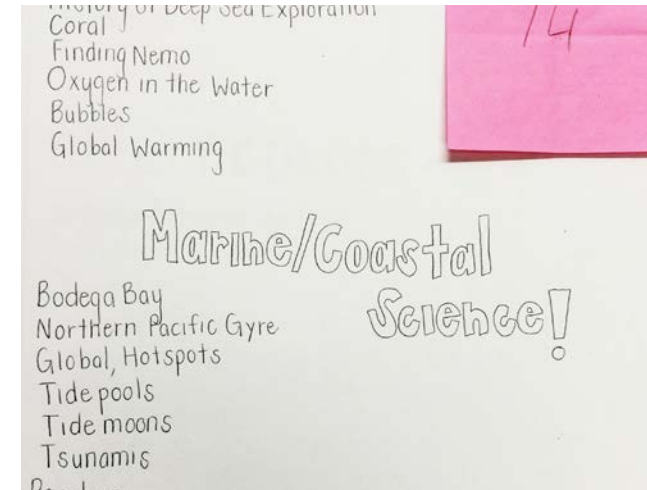 History of Deep Sea Exploration
Coral
Finding Nemo
Oxygen in the Water
Bubbles
Global Warming
14
Marine/Coastal
Science!
Bodega Bay
Northern Pacific Gyre
Global, Hotspots
Tide pools
Tide moons
Tsunamis